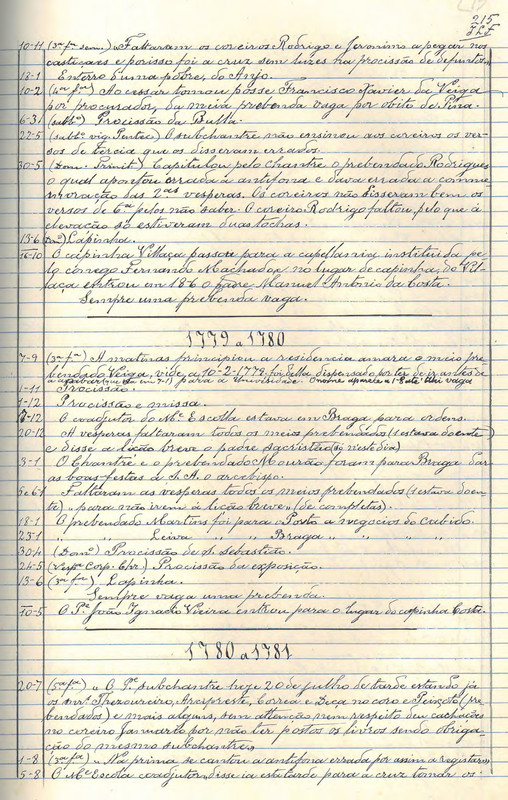 215
10-11 (3ª fª sem.) "Faltaram os coreiros Rodrigo e Jeronimo a pegar nos
castiçaes e porisso foi a cruz sem luzes na procissão de defuntos."
18-1 Enterro a uma pobre, do Anjo.
10-2 (4ª fª) Ao cessar tomou posse Francisco Xavier da Veiga
por procurador, da meia prebenda vaga por obito de Pina.
6-3 (sabbº) Procissão da Bulla.
22-5 (sabbº vig. Pentec) O subchantre não ensinou aos coreiros os ver-
sos de tercia que os disseram errados.
30-5 (Domº Trinit) Capitulou pelo Chantre o prebendado Rodrigues
o qual apontou errada a antifona e dava errada a comme-
moração das 2as vesperas. Os coreiros não disseram bem os
versos de 6ª pelos não saber. O coreiro Rodrigo faltou, pelo que á
elevação só estiveram duas tochas.
13-6 (Domº) Lapinha.
16-10 O capinha Villaça passou para a capellania instituida pe-
lo conego Fernando Machado e no lugar de capinha, do Vil-
laça entrou em 18-6 o padre Manuel Antonio da Costa.
Sempre uma prebenda vaga.
1779 a 1780
7-9 (3ª fª) A matinas principiou a residencia amara o meio pre-
bendado Veiga, vide, a 10-2-1779. foi della dispensado por ter de ir antes de
a acabar (que era em 7-1) para a Univsidade. O nome aparece a 1-8 até vaga
1-11 Procissão.
1-12 Procissão e missa.
17-12 O coadjutor do Mº Escolla estava em Braga para ordens.
20-12 A vesperas faltaram todos os meios prebendados (1 estava doente)
e disse a lição breve o padre sacristão (só n'este dia)
3-1 O Chantre e o prebendado Mourão foram para Braga dar
as boas-festas a S. A. o arcebispo.
5 e 6-1 Faltaram as vesperas todos os meios prebendados (1 estava doen-
te) "para não irem á lição breve" (de completas).
18-1 O prebendado Martins foi para o Porto a negocios do cabido.
23-1 " " Leiva " " " Braga " " " "
30-4 (Domº) Procissão de S. Sebastião.
24-5 (Vespª Corp. Chr.) Procissão da exposição.
13-6 (3ª fª) Lapinha.
Sempre vaga uma prebenda.
10-5 O Pe João Ignacio Vieira entrou para o lugar do capinha Costa.
1780 a 1781
20-7 (5ª fª) "O Pe subchantre hoje 20 de julho de tarde estando já
os snrs Thezoureiro, Arcipreste, Correa e Deça no coro e Peixoto (pre-
bendados) e mais alguns, sem attenção nem respeito deu cachações
no coreiro Januario por não ter postos os livros sendo obriga-
ção do mesmo subchantre."
1-8 (3ª fª) "Na prima se cantou a antifona errada por assim a registar."
5-8 O Mº Escolla coadjutor, disse ia esta tarde para a cruz tomar os